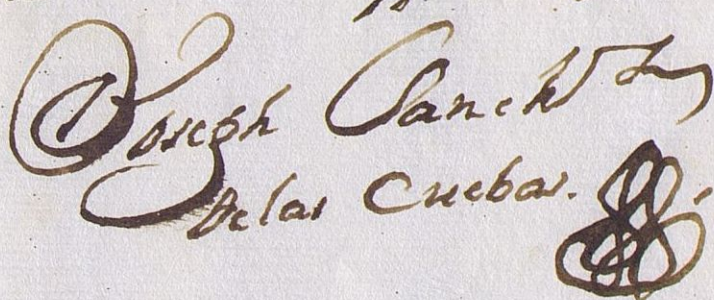 Joseph Sanchz
De las Cuebas.